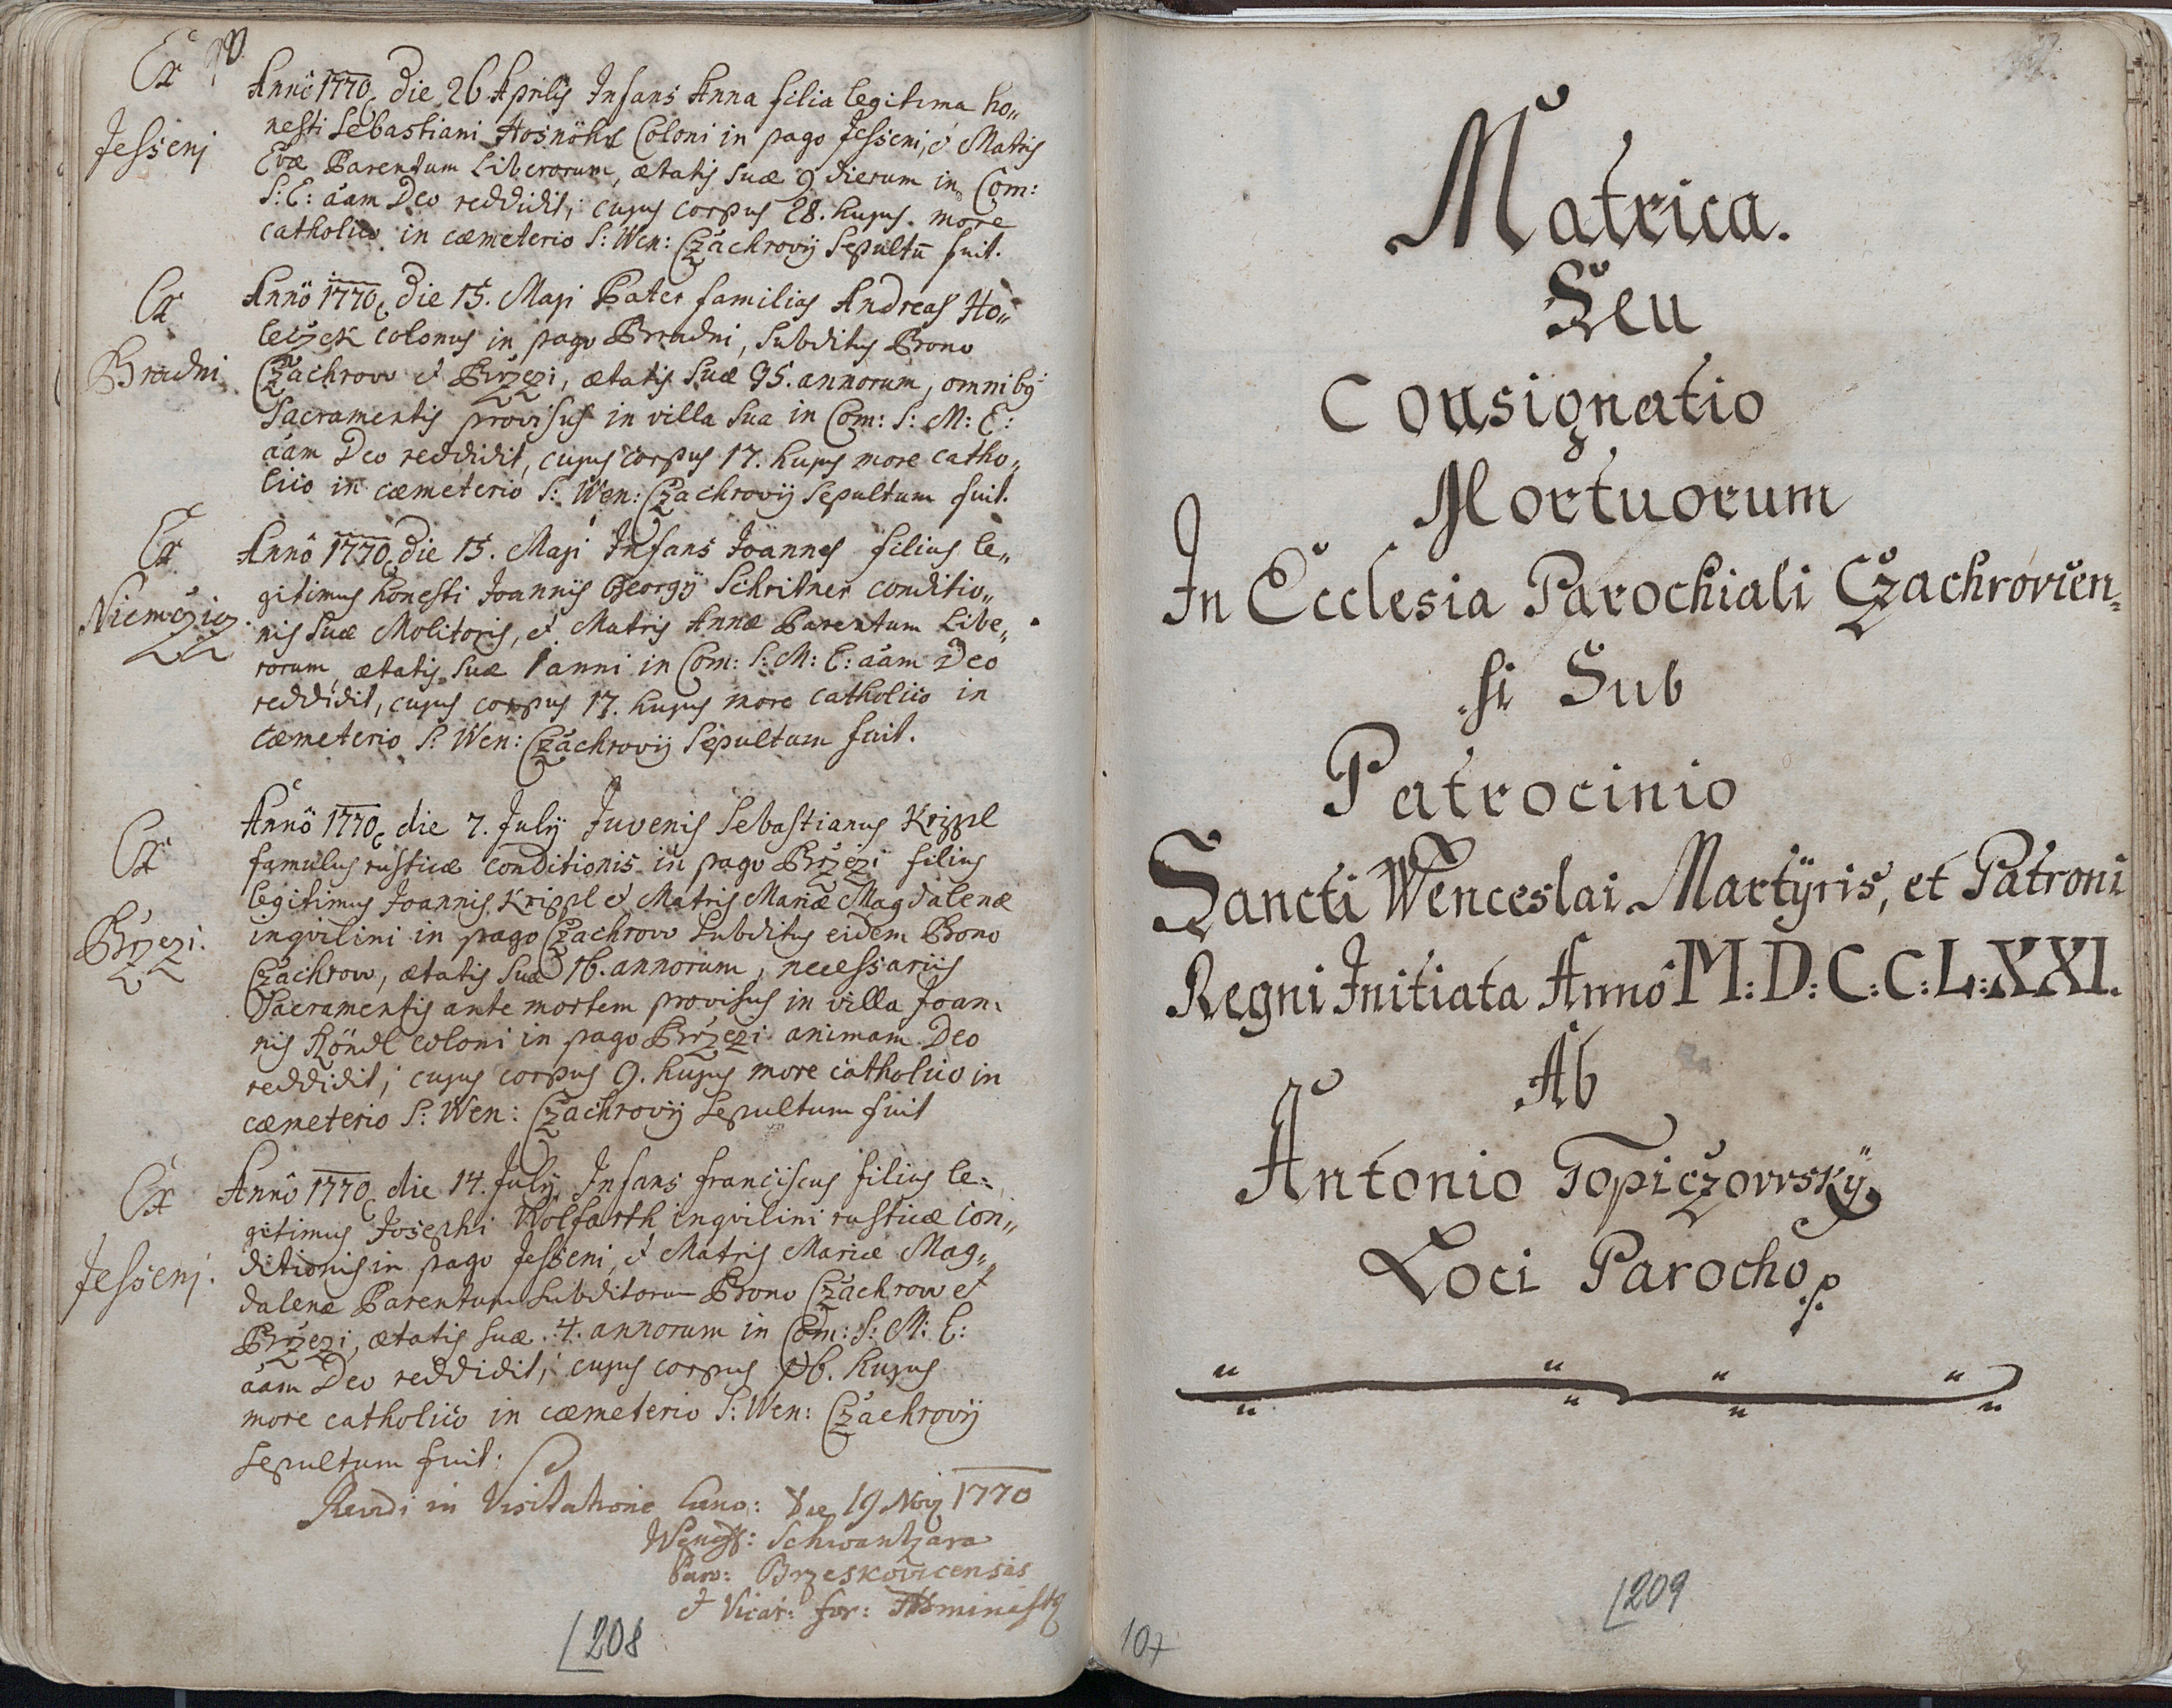 Ex
Jessenj
Annô 1770 die 26 Aprilis Infans Anna filia legitima ho„
nesti Sebastiani Coloni in pago Jesseni, et Matris
Evæ Parentum Liberorum, ætatis suæ 9 dierum in Com:
S: E: äam Deo reddidit, cujus corpus 28. hujus more
catholico in cæmeterio S: Wen: Czachrovij Sepultū fuit.
Ex
Bradni
Annô 1770 die 15. Maji Pater familias Andreas Ho„
leczek colonus in pago Bradni, Subditus Brono
Czachrow et Brzezi, ætatis Suæ 95. annorum, omnibq
Sacramentis provisus in villa sua in Com: S: M: E:
äam Deo reddidit, cujus corpus 17. hujus more catho„
lico in cæmeterio S: Wen: Czachrovij Sepultum fuit.
Ex
Niemczicz.
Annô 1770 die 15. Maji Infans Joannes filius le„
gitimus honesti Joannis Georgij Schritner conditio„
nis suæ Molitoris, et Matris Annæ Parentum Libe„
rorum, ætatis suæ 1 anni in Com: S: M: E: äam Deo
reddidit, cujus corpus 17. hujus more catholico in
cæmeterio S: Wen: Czachrovij Sepultum fuit.
Ex
Brzezi.
Annô 1770 die 7. Julij Juvenis Sebastianus Krippl
famulus rusticæ conditionis in pago Brzezi filius
legitimus Joannis Krippl et Matris Mariæ Magdalenæ
inqvilini in pago Czachrow Subditus eidem Brono
Czachrow, ætatis suæ 16. annorum, necessariis
Sacramentis ante mortem provisus in villa Joan:
nis Köndl coloni in pago Brzezi animam Deo
reddidit, cujus corpus 9. hujus more catholico in
cæmeterio S: Wen: Czachrovij Sepultum fuit
Ex
Jessenj.
Annô 1770 die 14. Julij Infans franciscus filius le:
gitimus Josephi Wolfarth inqvilini rusticæ con„
ditionis in pago Jesseni, et Matris Mariæ Mag„
dalenæ Parentum Subditorum Brono Czachrow et
Brzezi, ætatis suæ 4. annorum in Com: S: M: E:
äam Deo reddidit, cujus corpus 16. hujus
more catholico in cæmeterio S: Wen: Czachrovij
Sepultum fuit:
in Visitatione Cano: die 19 Nov 1770
Schwantzara
Par: Brzeskovicensis
et Vicar: for:
208
Matrica.
Seu
Consignatio
Mortuorum
In Ecclesia Parochiali Czachrovien„
si Sub
Patrocinio
Sancti Wenceslai Martÿris, et Patroni
Regni Initiata Annô M:D:C:C:L:XXI.
Ab
Antonio Topiczowskÿ
Loci Parocho
209
107